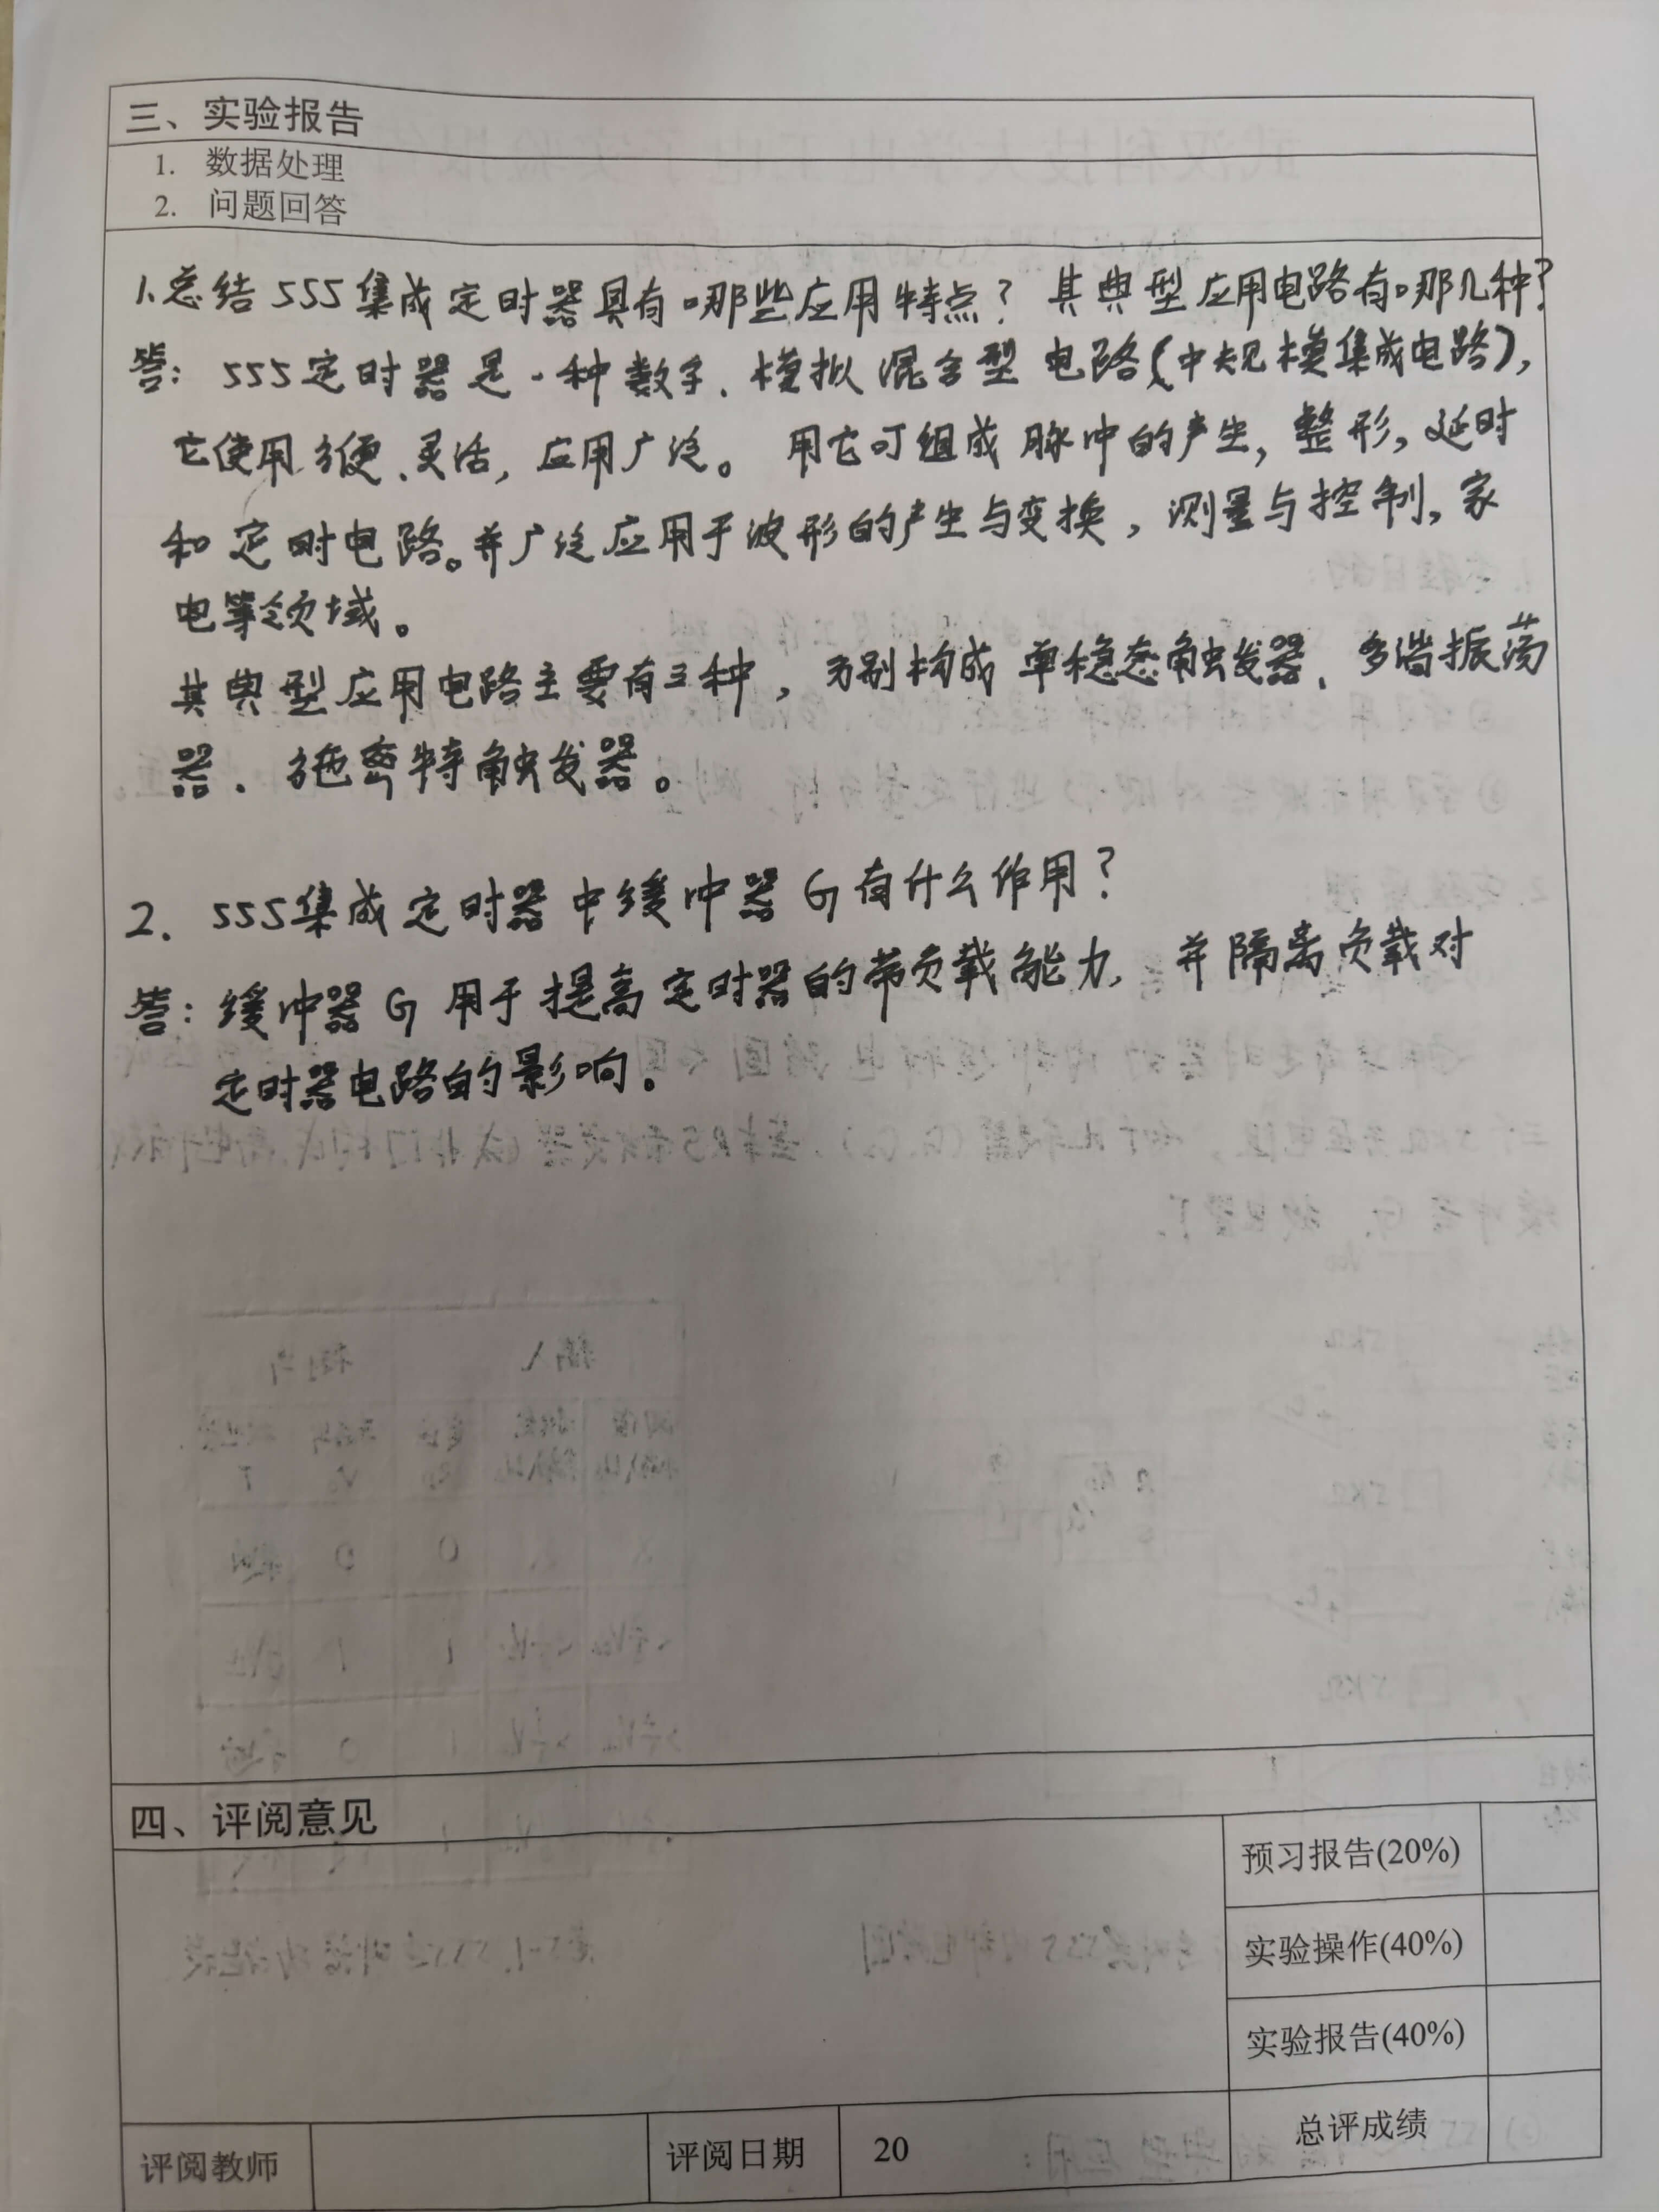 三、实验报告
1. 数据处理
2. 问题回答
1.总结555集成定时器具有哪些应用特点？其典型应用电路有哪几种？
答：555定时器是一种数字、模拟混合型电路(中规模集成电路)，
它使用方便、灵活，应用广泛。用它可组成脉冲的产生，整形，延时
和定时电路。并广泛应用于波形的产生与变换，测量与控制，家
电等领域。
其典型应用电路主要有三种，分别构成单稳态触发器、多谐振荡
器、施密特触发器。
2. 555集成定时器中缓冲器G有什么作用？
答：缓冲器G用于提高定时器的带负载能力，并隔离负载对
定时器电路的影响。
四、评阅意见
预习报告(20%)
实验操作(40%)
实验报告(40%)
总评成绩
评阅教师
评阅日期
20